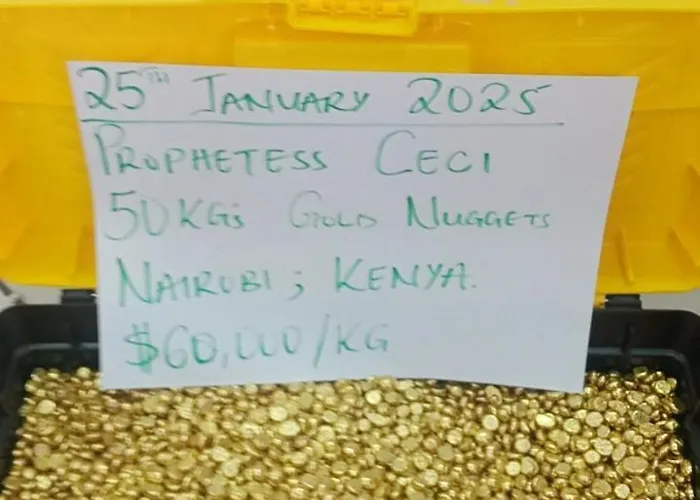 25TH JANUARY 2025
PROPHETESS CECI
50KGs GOLD NUGGETS
NAIROBI; KENYA.
$60,000/KG